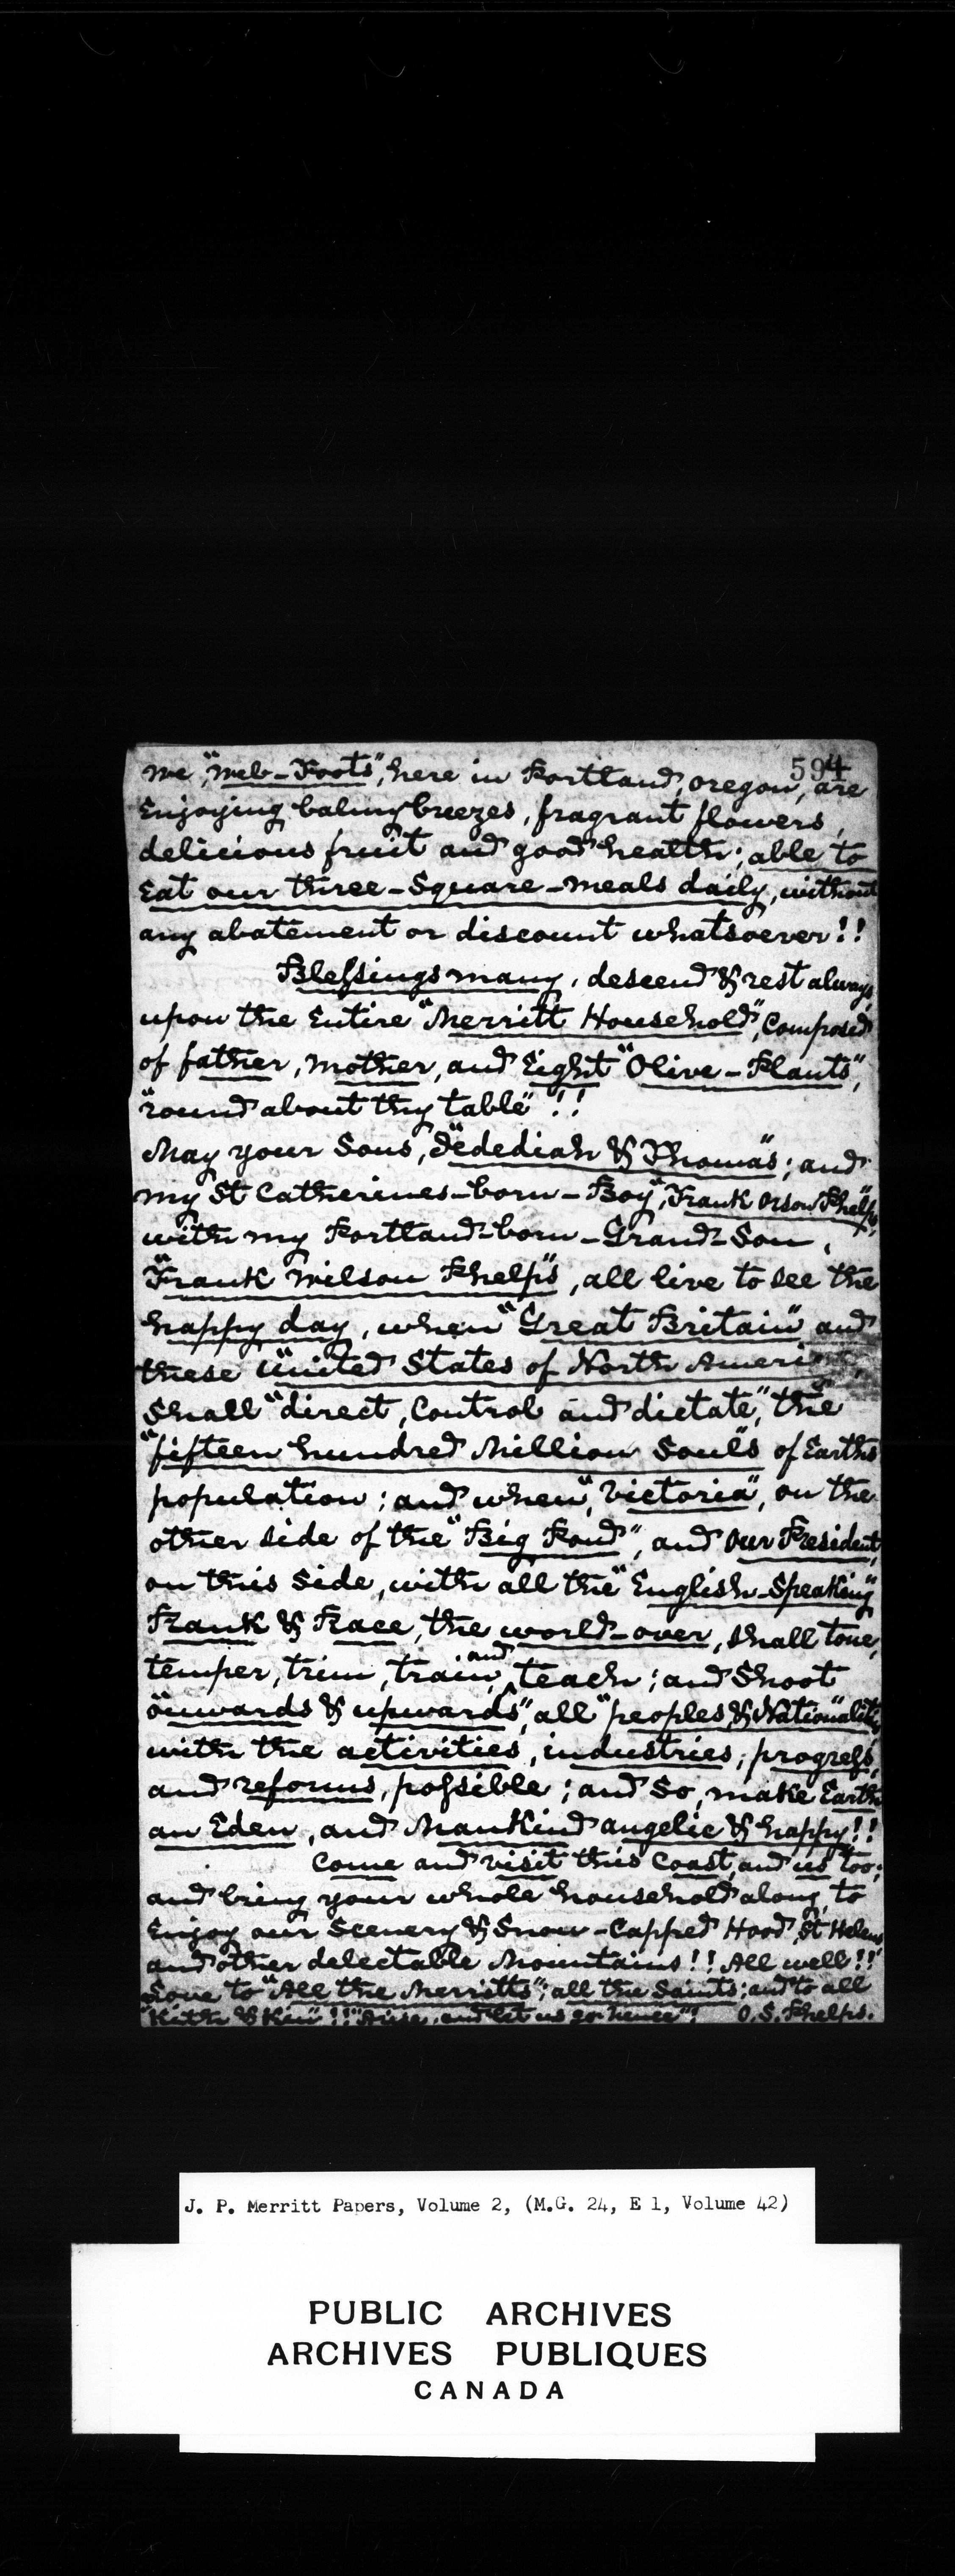 594
we, "Web-Foots", here in Portland, Oregon, are
Enjoying balmy breezes, fragrant flowers,
delicious fruit and good health; able to
Eat our three-Square-meals daily, without
any abatement or discount whatsoever!!
Blessings many, descend & rest always,
upon the Entire "Merritt Household", Composed
of father, mother, and Eight "Olive-Plants",
"round about thy table"!!
May your Sons, "Jedediah & Thomas"; and
my St Catherines-born-Boy, "Frank Orson Phelps",
with my Portland-born-Grand-Son,
"Frank Wilson Phelps", all live to see the
happy day, when "Great Britain" and
these "United States of North America,
Shall "direct, Control and dictate", the
"fifteen hundred Million Souls" of Earths
population; and when, "Victoria", on the
other side of the "Big Pond", and Our President,
on this Side, with all the "English-Speaking"
Rank & Race, the world-over, shall tone,
temper, trim, train, and teach; and Shoot
"onwards & upwards", all "peoples & Nationalities,
with the activities, industries, progress,
and reforms, possible; and So, make Earth
an Eden, and Mankind angelic & happy!!
Come and visit this Coast, and us too;
and bring your whole household along, to
Enjoy our Scenery & Snow-Capped Hood, St Helens
and other delectable Mountains!! All well!!
Love to "All the Merritts"; all the Saints; and to all
"Kith & Kin"!! "Arise, and let us go hence"! O. S. Phelps.
J. P. Merritt Papers, Volume 2, (M.G. 24, E 1, Volume 42)
PUBLIC ARCHIVES
ARCHIVES PUBLIQUES
CANADA